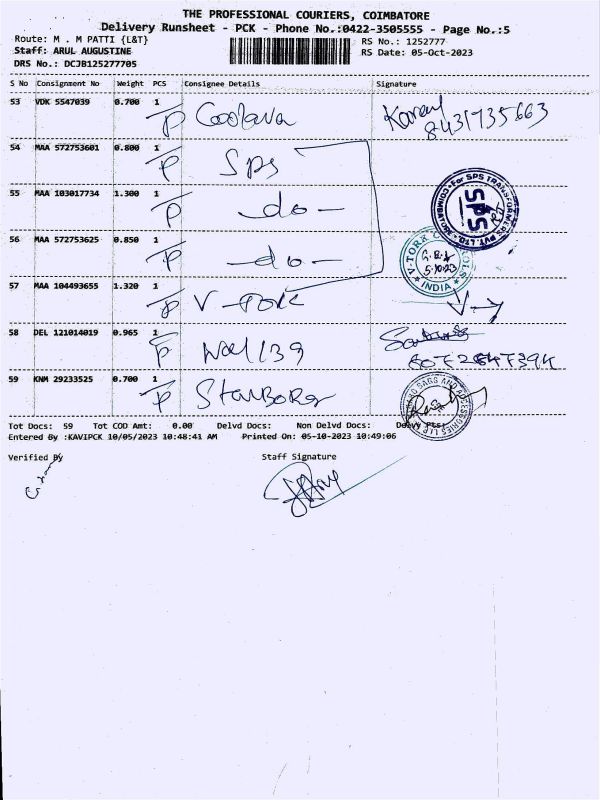 THE PROFESSIONAL COURIERS, COIMBATORE
Delivery Runsheet - PCK - Phone No.:0422-3505555 - Page No.:5
Route: M . M PATTI {L&T} RS No.: 1252777
Staff: ARUL AUGUSTINE RS Date: 05-Oct-2023
DRS No.: DCJB125277705
S No Consignment No Weight PCS Consignee Details Signature
53 VDK 5547039 0.700 1
P
8431735663
54 MAA 572753601 0.800 1
P SPS
55 MAA 103017734 1.300 1
P -do-
FOR SPS TRANSFORMERS PVT. LTD. COIMBATORE
SPS
56 MAA 572753625 0.850 1
P -do-
V-TORK
INDIA
5.10.23
57 MAA 104493655 1.320 1
P V-TORK
58 DEL 121014019 0.965 1
P
59 KNM 29233525 0.700 1
P
BAGS AND ACCESSORIES LLP
Tot Docs: 59 Tot COD Amt: 0.00 Delvd Docs: Non Delvd Docs: Delvy Pts:
Entered By :KAVIPCK 10/05/2023 10:48:41 AM Printed On: 05-10-2023 10:49:06
Verified By Staff Signature